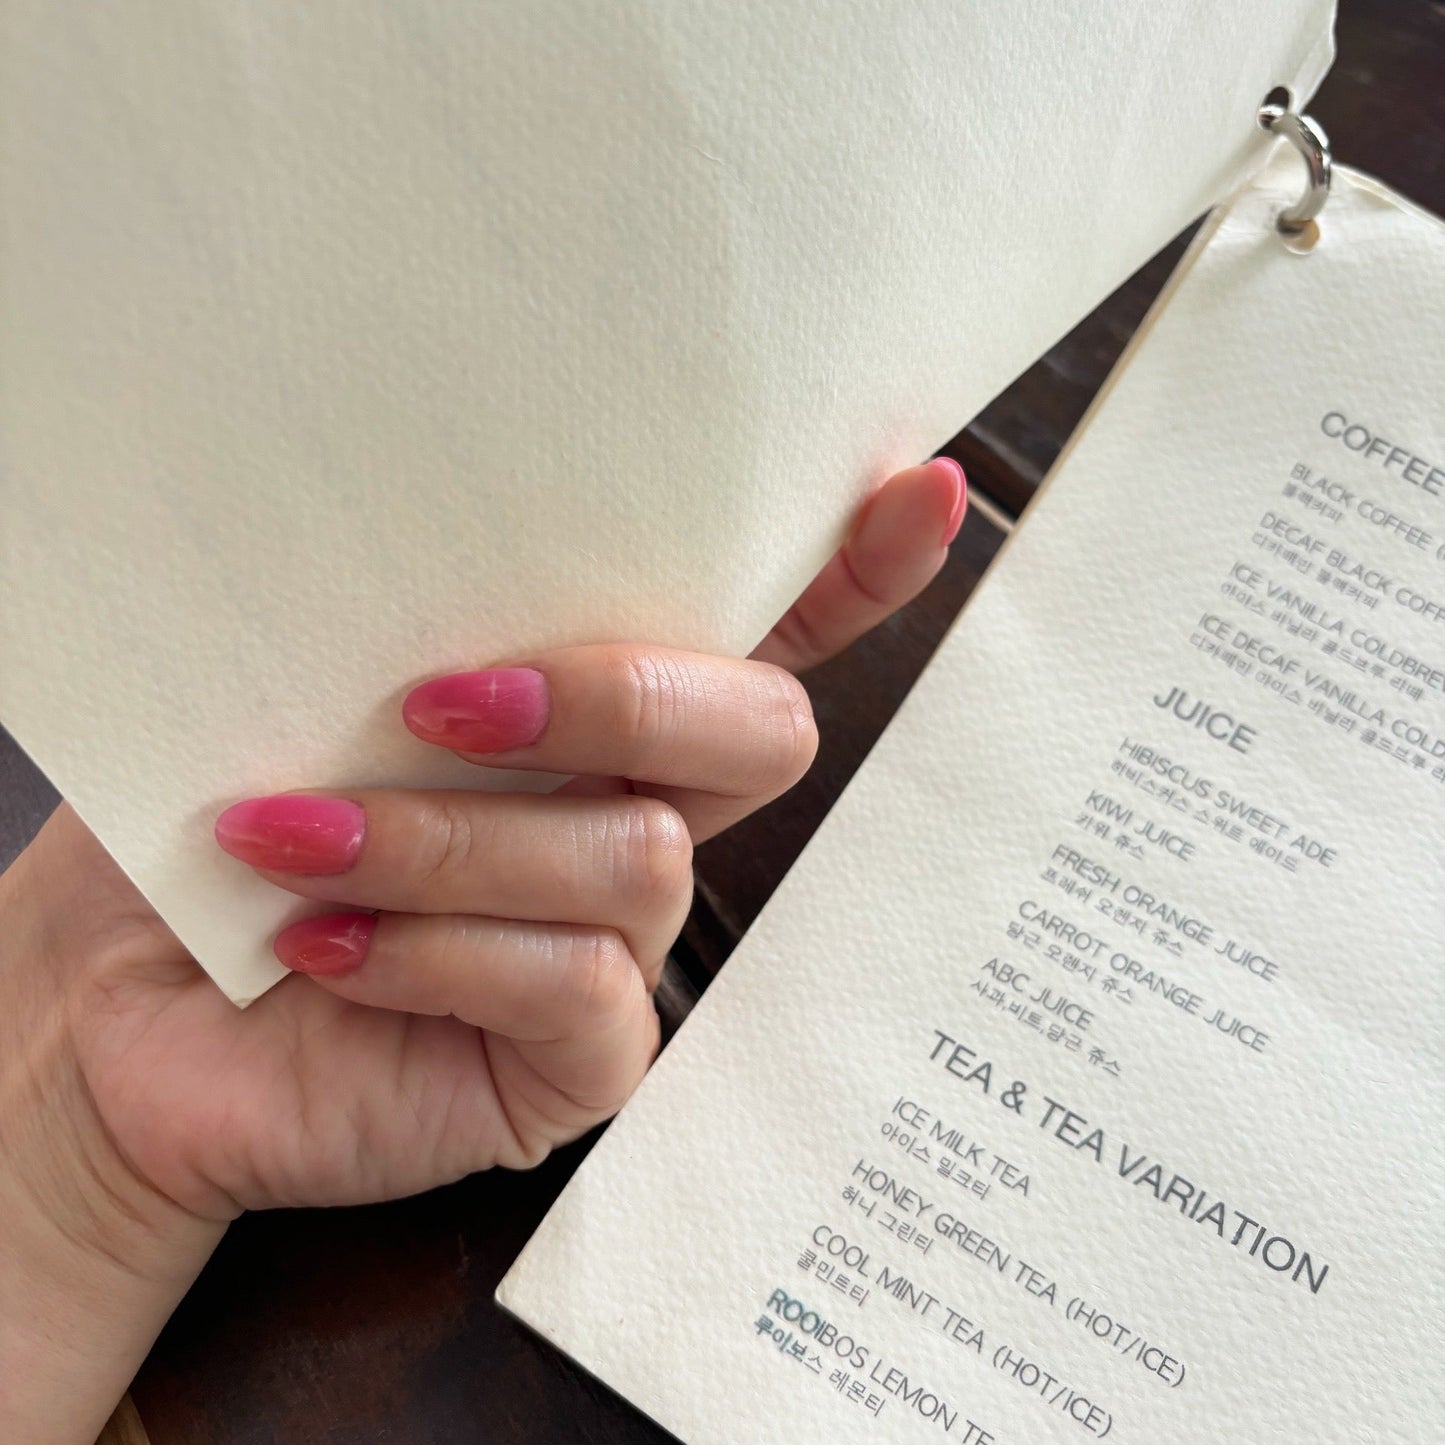 COFFEE
BLACK COFFEE (
블랙커피
DECAF BLACK COFF
디카페인 블랙커피
ICE VANILLA COLDBREW
아이스 바닐라 콜드브루 라떼
ICE DECAF VANILLA COLD
디카페인 아이스 바닐라 콜드브루 라
JUICE
HIBISCUS SWEET ADE
히비스커스 스위트 에이드
KIWI JUICE
키위 쥬스
FRESH ORANGE JUICE
프레쉬 오렌지 쥬스
CARROT ORANGE JUICE
당근 오렌지 쥬스
ABC JUICE
사과,비트,당근 쥬스
TEA & TEA VARIATION
ICE MILK TEA
아이스 밀크티
HONEY GREEN TEA (HOT/ICE)
허니 그린티
COOL MINT TEA (HOT/ICE)
쿨민트티
ROOIBOS LEMON TE
루이보스 레몬티